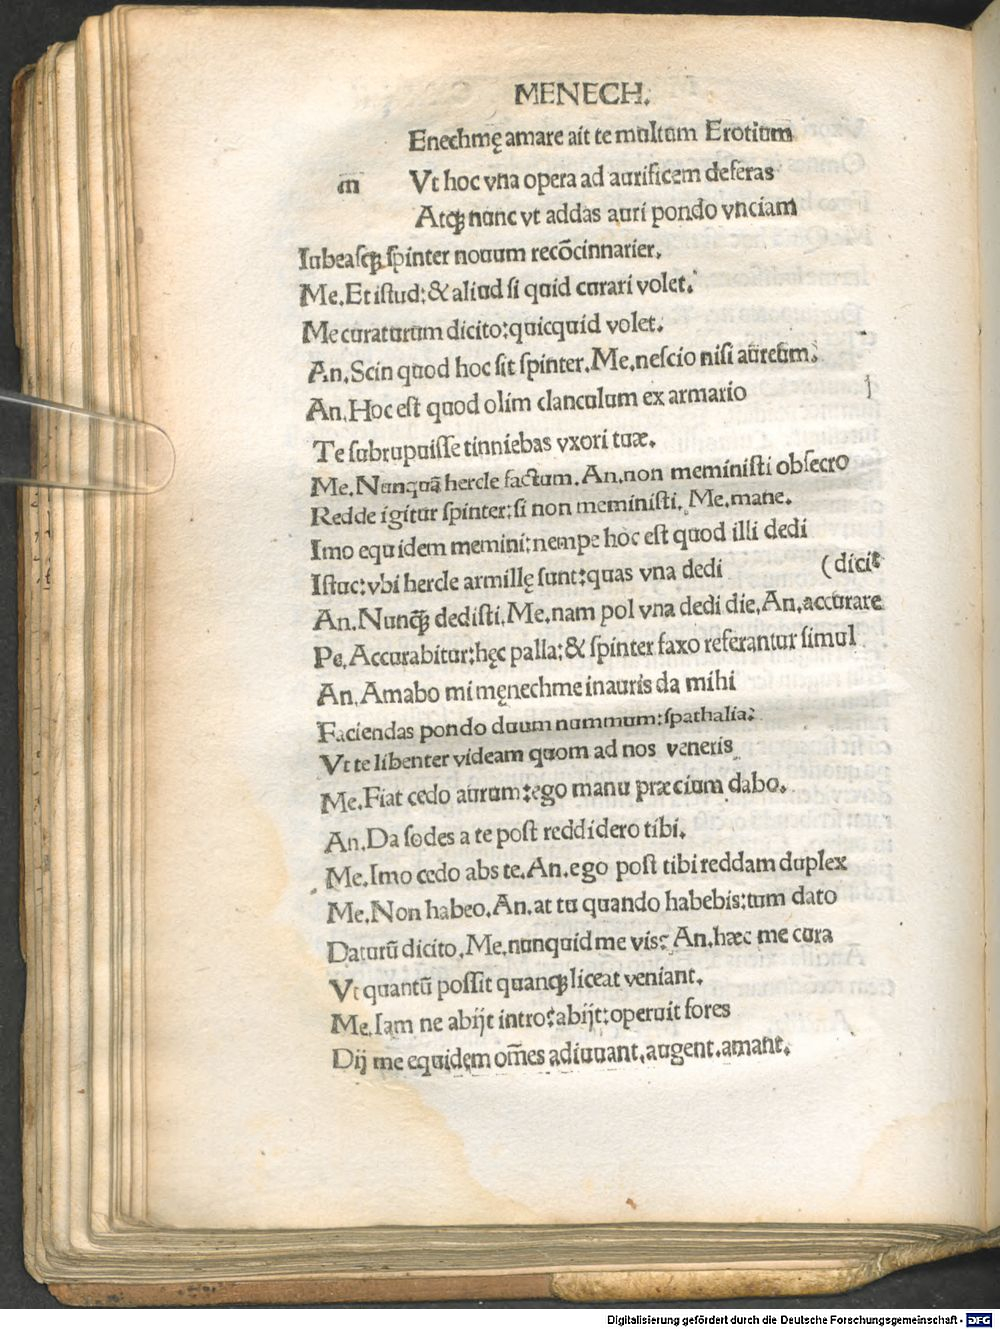 MENECH.
Enechmę amare ait te multum Erotium
m Vt hoc vna opera ad aurificem deferas
Atqꝫ nunc vt addas auri pondo vnciam
Iubeasqꝫ spinter nouum recōcinnarier.
Me. Et istud: & aliud si quid curari volet.
Me curaturum dicito: quicquid volet.
An. Scin quod hoc sit spinter. Me. nescio nisi aureum.
An. Hoc est quod olim clanculum ex armario
Te subrupuisse tinniebas vxori tuæ.
Me. Nunquā hercle factum. An. non meministi obsecro
Redde igitur spinter: si non meministi. Me. mane.
Imo equidem memini: nempe hoc est quod illi dedi
Istuc: vbi hercle armillę sunt: quas vna dedi (dicit
An. Nunqꝫ dedisti. Me. nam pol vna dedi die. An. accurare
Pe. Accurabitur: hęc palla: & spinter faxo referantur simul
An. Amabo mi męnechme inauris da mihi
Faciendas pondo duum nummum: spathalia:
Vt te libenter videam quom ad nos veneris
Me. Fiat cedo aurum: ego manu præcium dabo.
An. Da sodes a te post reddidero tibi.
Me. Imo cedo abs te. An. ego post tibi reddam duplex
Me. Non habeo. An. at tu quando habebis: tum dato
Daturū dicito. Me. nunquid me vis? An. hæc me cura
Vt quantū possit quanqꝫ liceat veniant.
Me. Iam ne abijt intro? abijt: operuit fores
Dij me equidęm om̄es adiuuant. augent. amant.
Digitalisierung gefördert durch die Deutsche Forschungsgemeinschaft - DFG